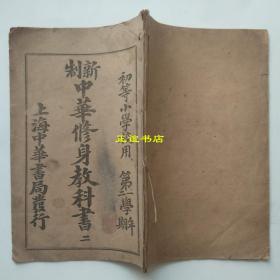 初等小學校用 第一學年
新制中華修身教科書 二
上海中華書局發行
正誼书店